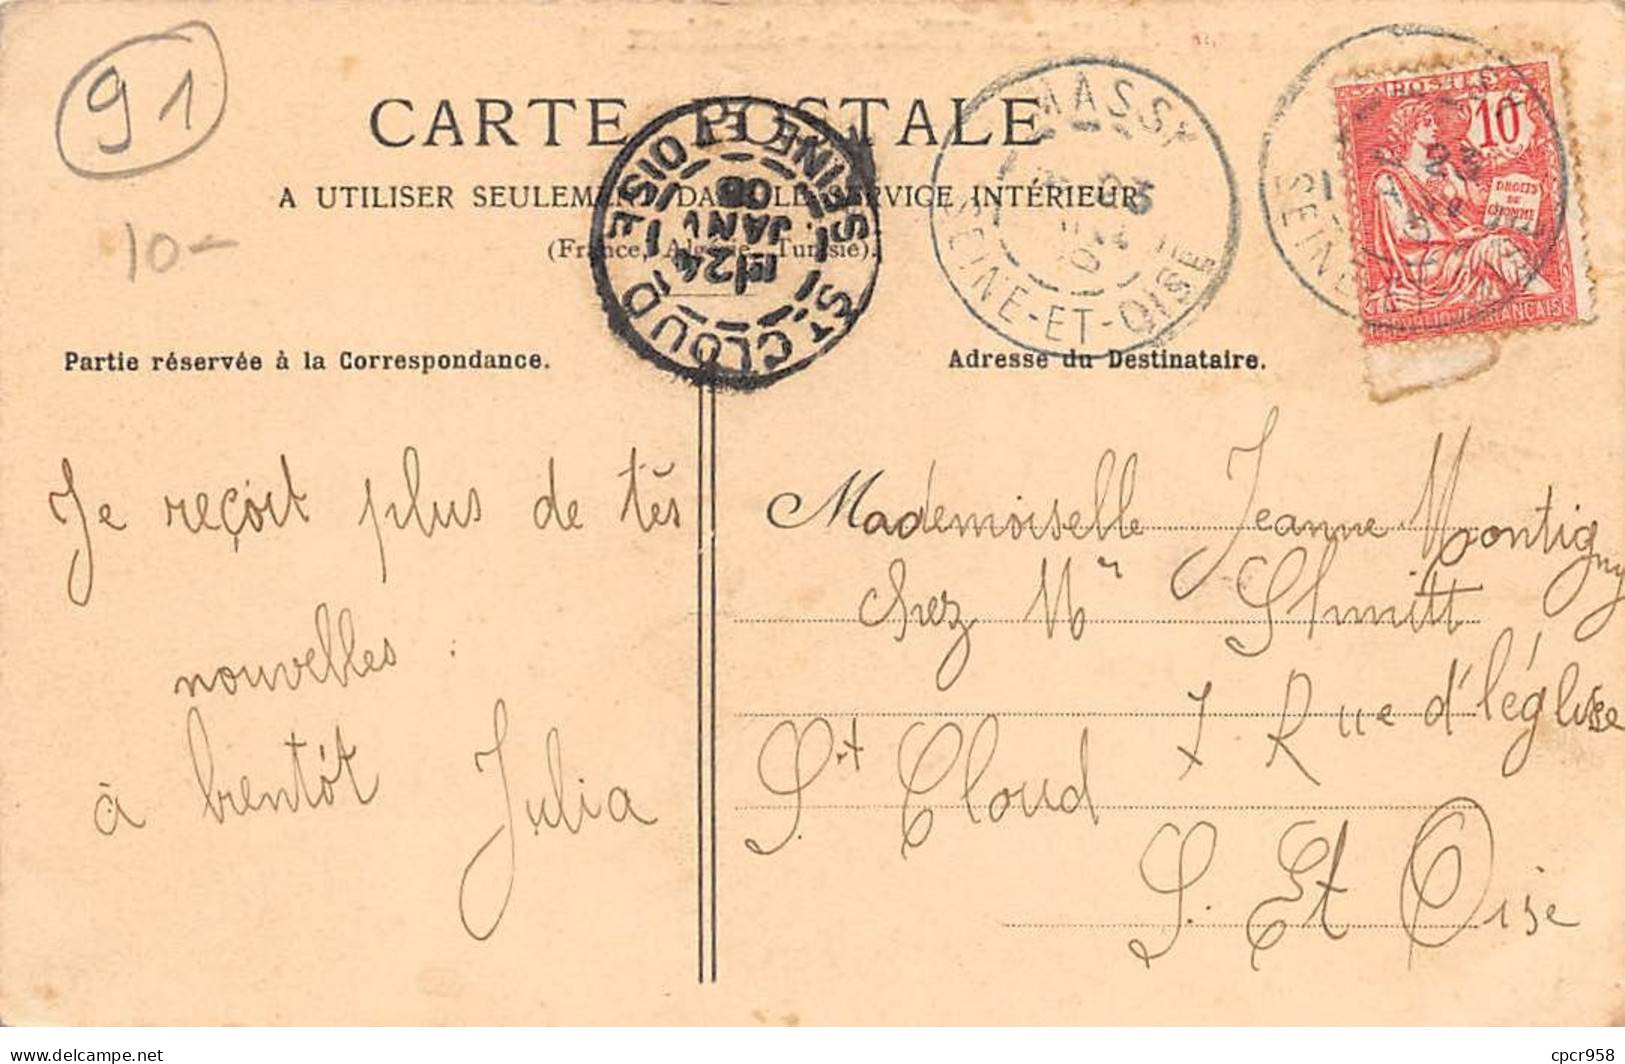 91
10-
CARTE POSTALE
A UTILISER SEULEMENT DANS LE SERVICE INTÉRIEUR
(France, Algérie, Tunisie).
ST CLOUD
SEINE ET OISE
24
JANV
MASSY
SEINE-ET-OISE
POSTES
10
DROITS
DE
L'HOMME
Partie réservée à la Correspondance.
Adresse du Destinataire.
Je reçoit plus de tés
nouvelles :
à bientôt Julia
Mademoiselle Jeanne Montigny
Chez Mr Shmitt
7 Rue d'léglise
St Cloud
S. Et Oise
delcampe.net
cpcr958